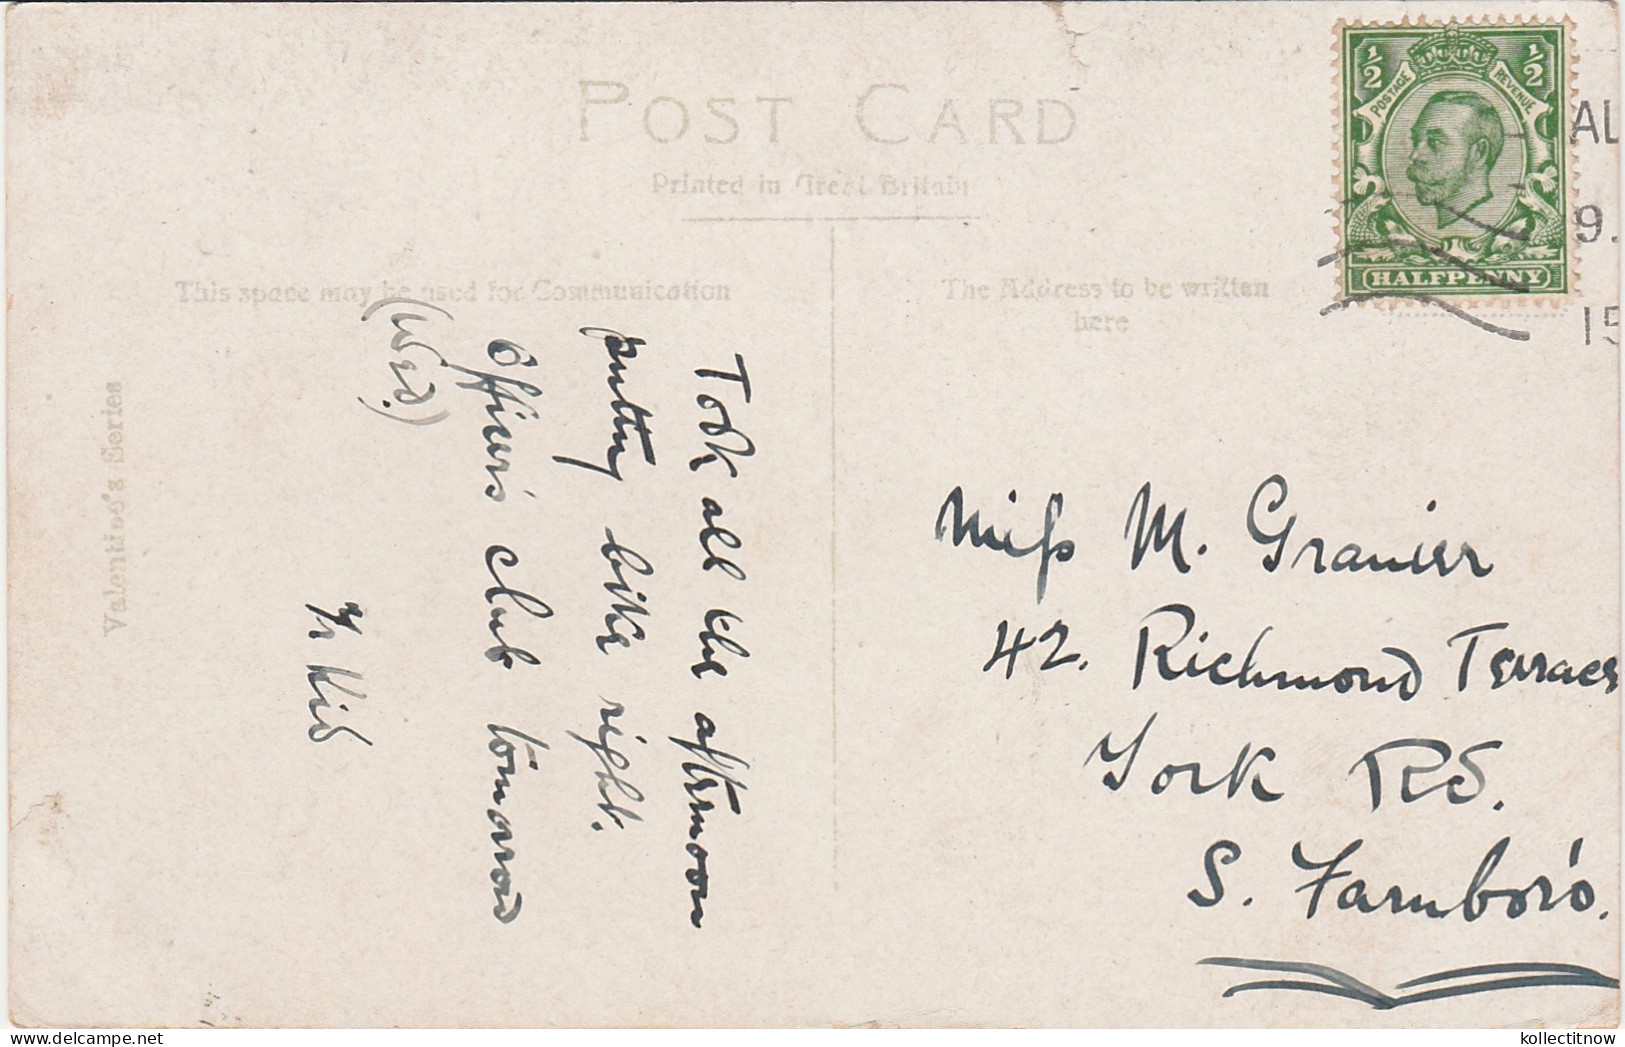 POST CARD
Printed in Great Britain
This space may be used for Communication
The Address to be written
here
Valentine's Series
½ ½
POSTAGE REVENUE
HALFPENNY
AL
9.
15
Took all the afternoon
putting bike right.
Officer's club tomorrow
(Wed.)
Kid
Miss M. Granier
42. Richmond Terrace
York Rd.
S. Farnboro'.
kollectitnow